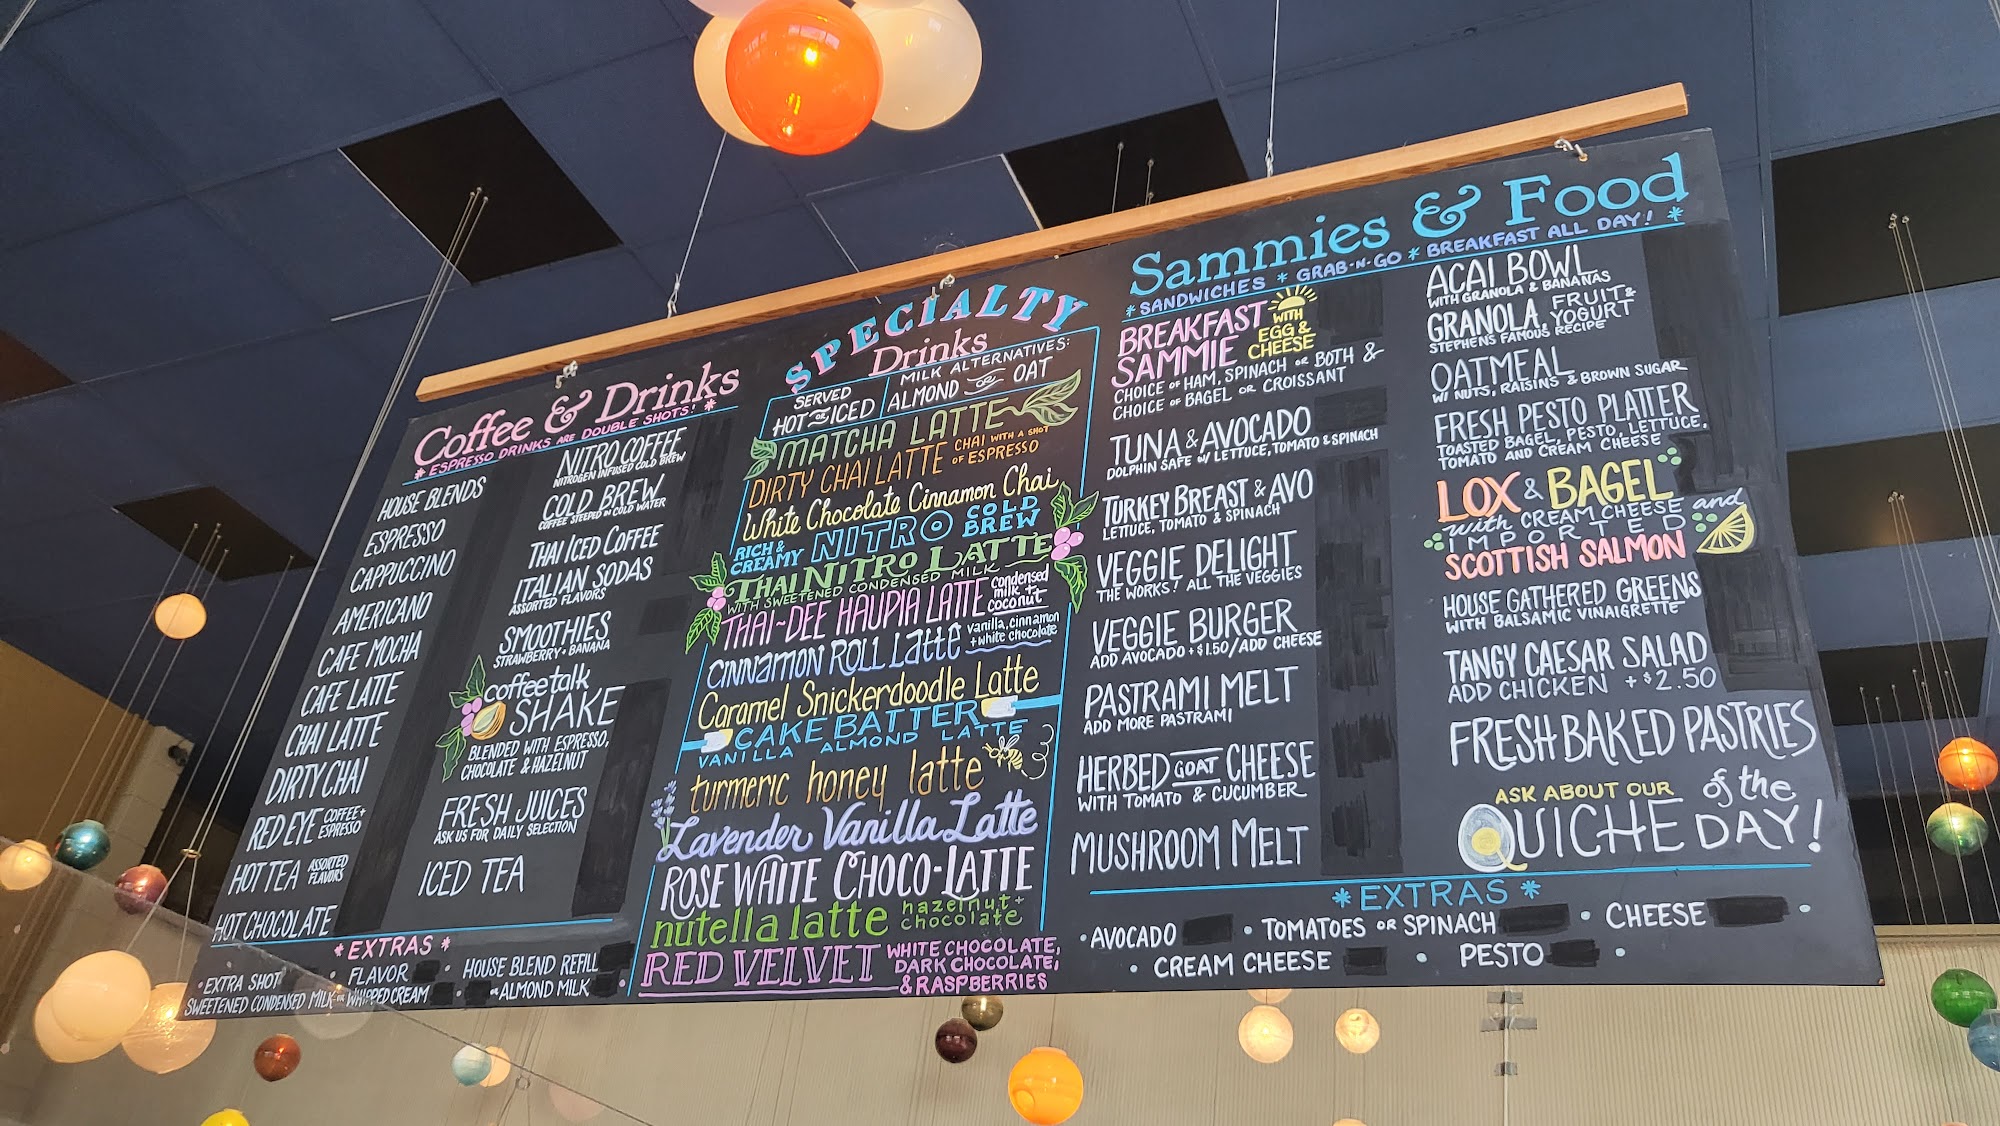 Coffee & Drinks
* ESPRESSO DRINKS ARE DOUBLE SHOTS! *
HOUSE BLENDS
ESPRESSO
CAPPUCCINO
AMERICANO
CAFE MOCHA
CAFE LATTE
CHAI LATTE
DIRTY CHAI
RED EYE COFFEE +
ESPRESSO
HOT TEA ASSORTED
FLAVORS
HOT CHOCOLATE
NITRO COFFEE
NITROGEN INFUSED COLD BREW
COLD BREW
COFFEE STEEPED IN COLD WATER
THAI ICED COFFEE
ITALIAN SODAS
ASSORTED FLAVORS
SMOOTHIES
STRAWBERRY · BANANA
coffee talk
SHAKE
BLENDED WITH ESPRESSO,
CHOCOLATE & HAZELNUT
FRESH JUICES
ASK US FOR DAILY SELECTION
ICED TEA
* EXTRAS *
• EXTRA SHOT • FLAVOR • HOUSE BLEND REFILL
SWEETENED CONDENSED MILK OR WHIPPED CREAM • OR ALMOND MILK
SPECIALTY
Drinks
SERVED
HOT OR ICED
MILK ALTERNATIVES:
ALMOND OR OAT
MATCHA LATTE
DIRTY CHAI LATTE CHAI WITH A SHOT
OF ESPRESSO
White Chocolate Cinnamon Chai
RICH &
CREAMY NITRO COLD
BREW
THAI NITRO LATTE
WITH SWEETENED CONDENSED MILK
THAI-DEE HAUPIA LATTE condensed
milk +
coconut
CINNAMON ROLL Latte vanilla, cinnamon
+ white chocolate
Caramel Snickerdoodle Latte
CAKE BATTER
VANILLA ALMOND LATTE
turmeric honey latte
Lavender Vanilla Latte
ROSE WHITE CHOCO-LATTE
nutella latte hazelnut +
chocolate
RED VELVET WHITE CHOCOLATE,
DARK CHOCOLATE,
& RASPBERRIES
Sammies & Food
* SANDWICHES * GRAB-N-GO * BREAKFAST ALL DAY! *
BREAKFAST
SAMMIE
WITH
EGG &
CHEESE
CHOICE OF HAM, SPINACH OR BOTH &
CHOICE OF BAGEL OR CROISSANT
TUNA & AVOCADO
DOLPHIN SAFE W/ LETTUCE, TOMATO & SPINACH
TURKEY BREAST & AVO
LETTUCE, TOMATO & SPINACH
VEGGIE DELIGHT
THE WORKS! ALL THE VEGGIES
VEGGIE BURGER
ADD AVOCADO + $1.50/ADD CHEESE
PASTRAMI MELT
ADD MORE PASTRAMI
HERBED GOAT CHEESE
WITH TOMATO & CUCUMBER
MUSHROOM MELT
ACAI BOWL
WITH GRANOLA & BANANAS
GRANOLA, FRUIT &
YOGURT
STEPHENS FAMOUS RECIPE
OATMEAL
W/ NUTS, RAISINS & BROWN SUGAR
FRESH PESTO PLATTER
TOASTED BAGEL, PESTO, LETTUCE,
TOMATO AND CREAM CHEESE
LOX & BAGEL
with CREAM CHEESE and
IMPORTED
SCOTTISH SALMON
HOUSE GATHERED GREENS
WITH BALSAMIC VINAIGRETTE
TANGY CAESAR SALAD
ADD CHICKEN + $2.50
FRESH BAKED PASTRIES
ASK ABOUT OUR
QUICHE of the
DAY!
* EXTRAS *
• AVOCADO • TOMATOES OR SPINACH • CHEESE •
• CREAM CHEESE • PESTO •